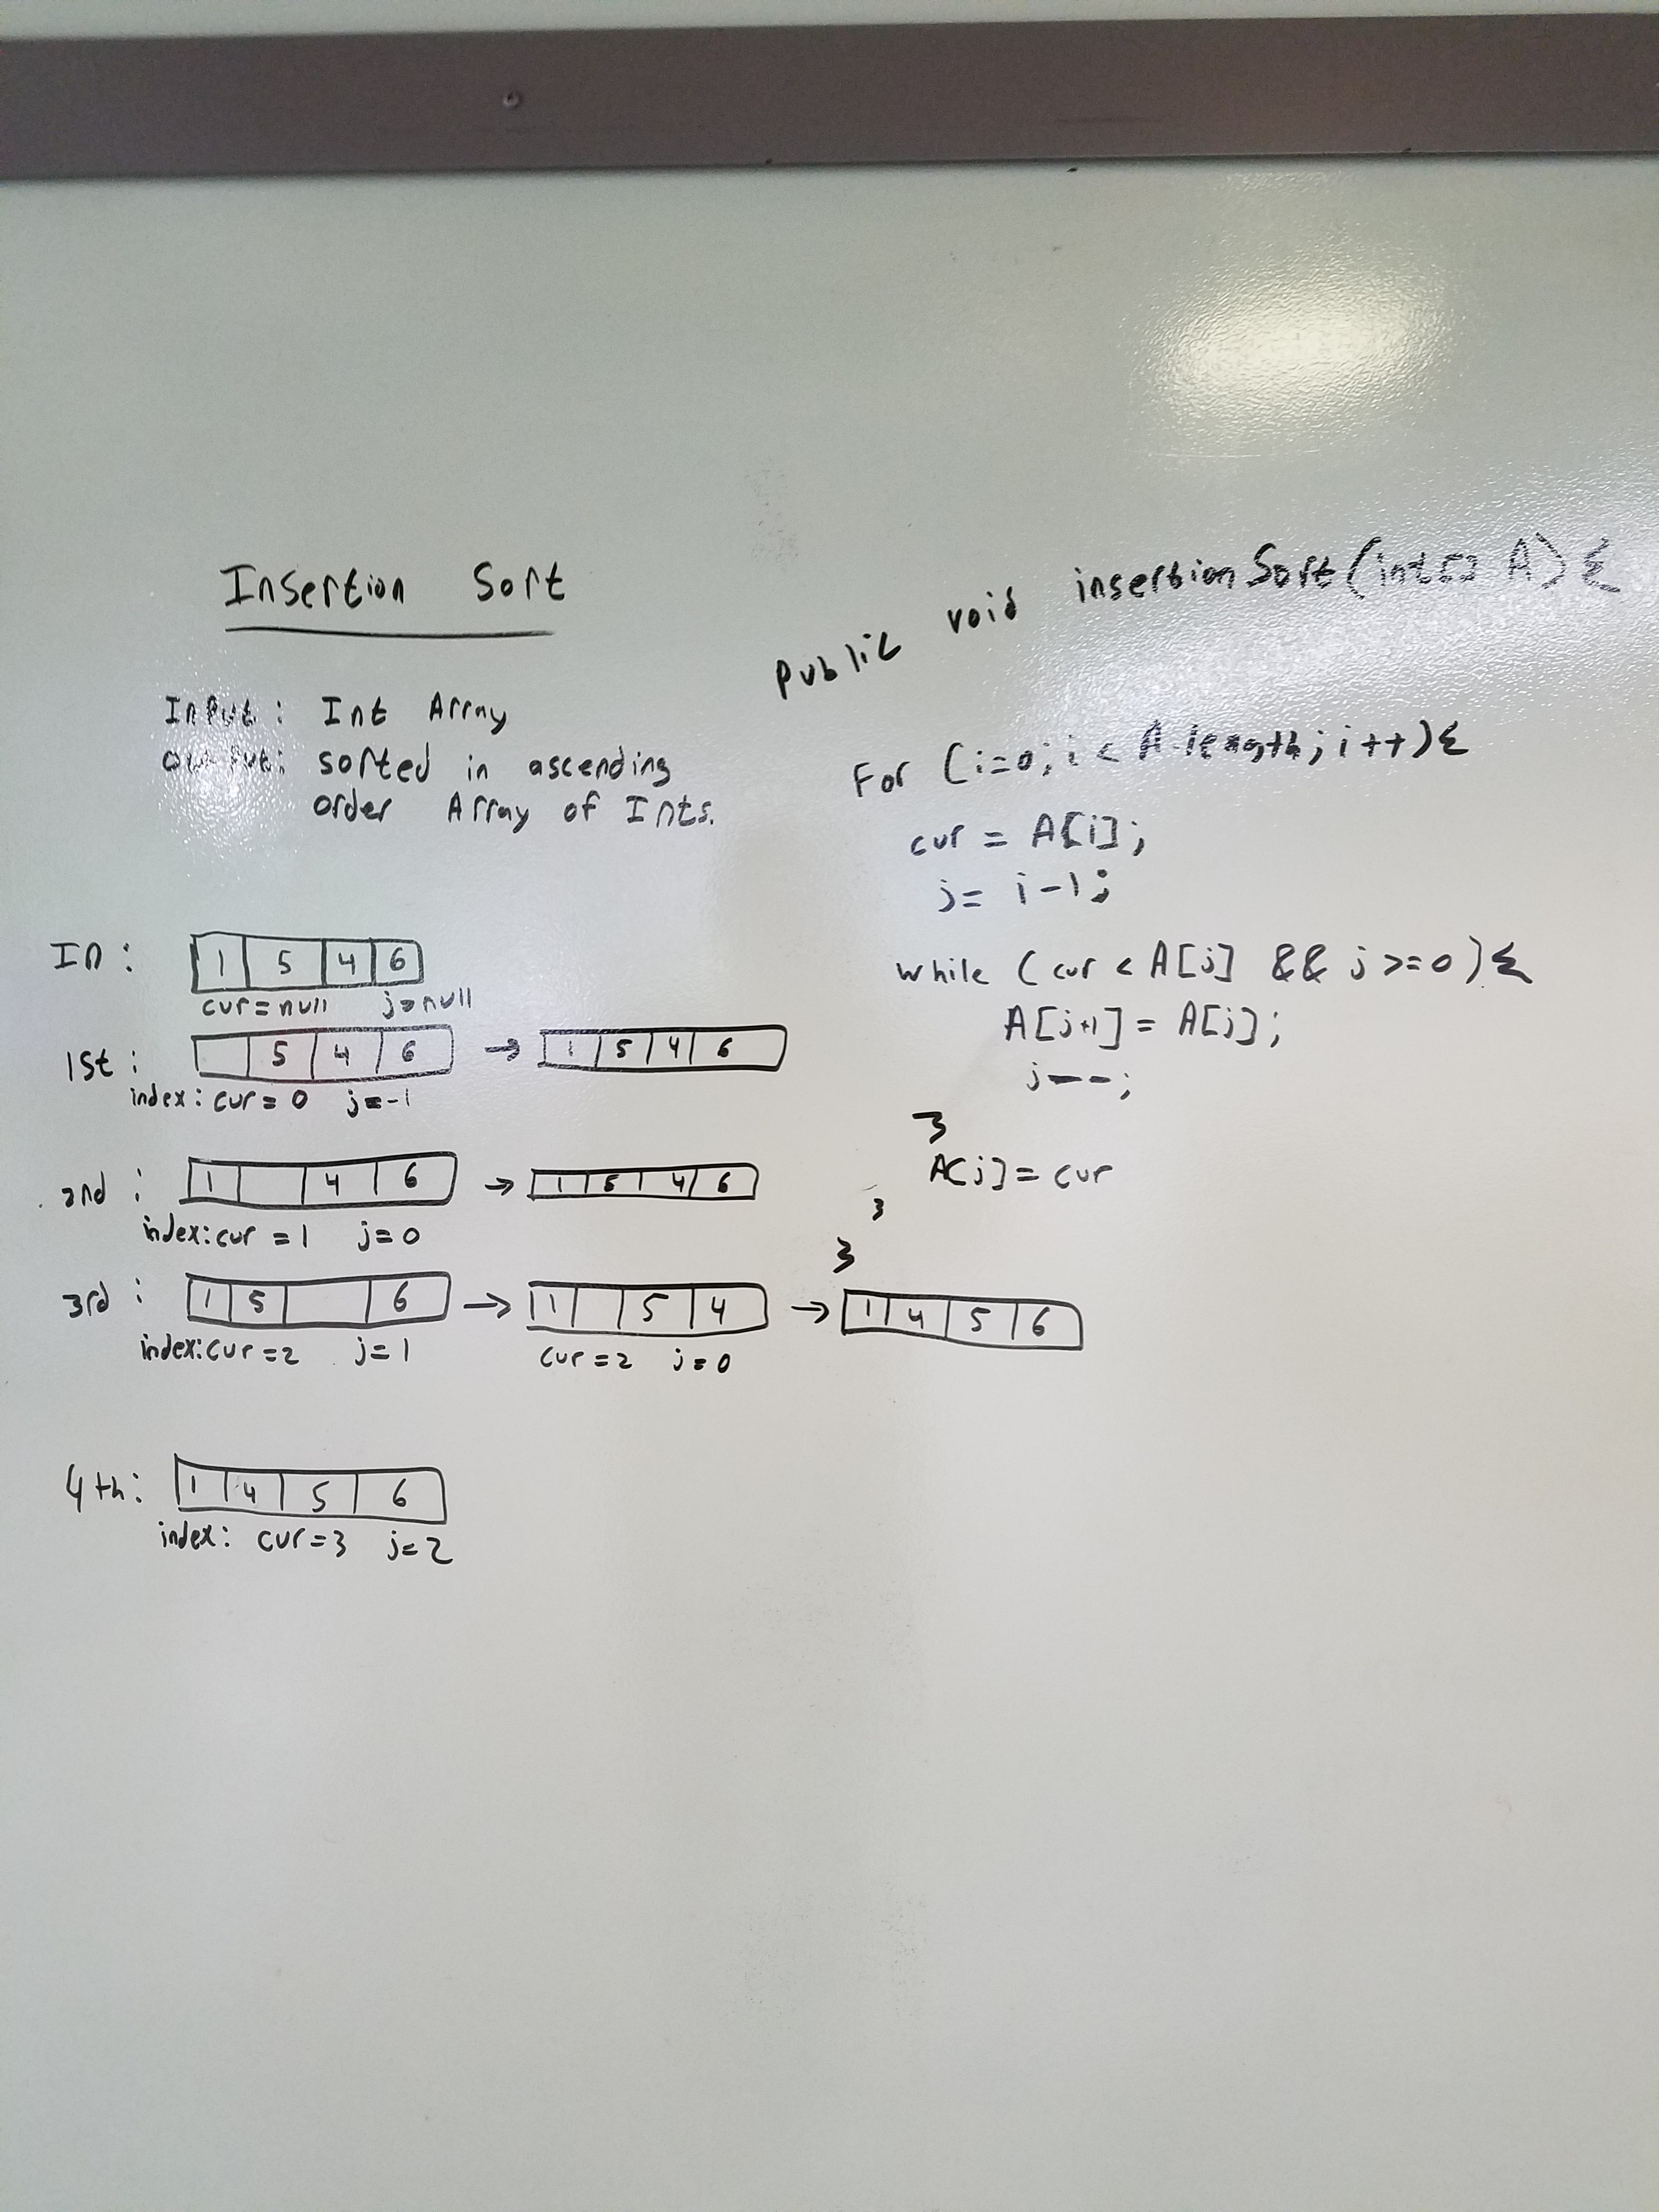 Insertion Sort
Input: Int Array
Output: sorted in ascending
order Array of Ints.
In: 1 5 4 6
cur=null j=null
1st: 5 4 6 → 1 5 4 6
index: cur= 0 j=-1
2nd: 1 4 6 → 1 5 4 6
index:cur =1 j=0
3rd: 1 5 6 → 1 5 4 → 1 4 5 6
index:cur =2 j=1 cur=2 j=0
4th: 1 4 5 6
index: cur=3 j=2
public void insertionSort(int[] A){
For (i=0; i < A.length; i++){
cur = A[i];
j= i-1;
while (cur < A[j] && j >=0){
A[j+1] = A[j];
j--;
}
A[j]=cur
}
}